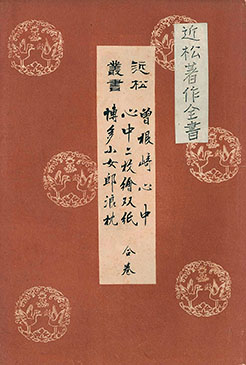 近松著作全書
近松
叢書
曽根崎心中
心中二枚繪双紙
博多小女郎浪枕
合巻